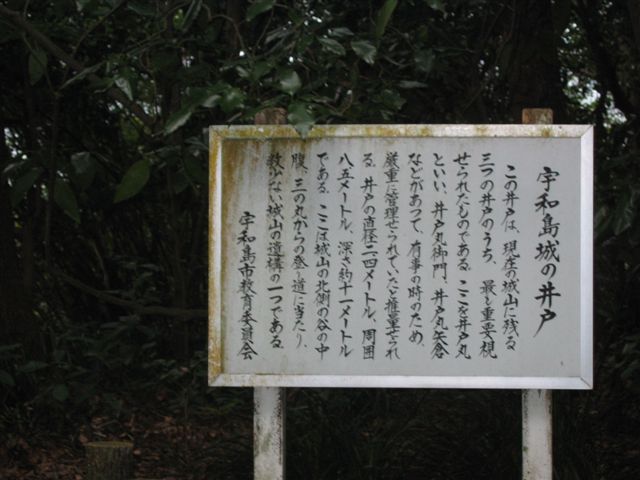 宇和島城の井戸
この井戸は、現在の城山に残る
三つの井戸のうち、最も重要視
せられたものである。ここを井戸丸
といい、井戸丸御門、井戸丸矢倉
などがあって、有事の時のため、
厳重に管理せられていたと推量せられ
る。井戸の直径二・四メートル、周囲
八・五メートル、深さ約十一メートル
である。ここは城山の北側の谷の中
腹、三の丸からの登り道に当たり、
数少ない城山の遺構の一つである。
宇和島市教育委員会